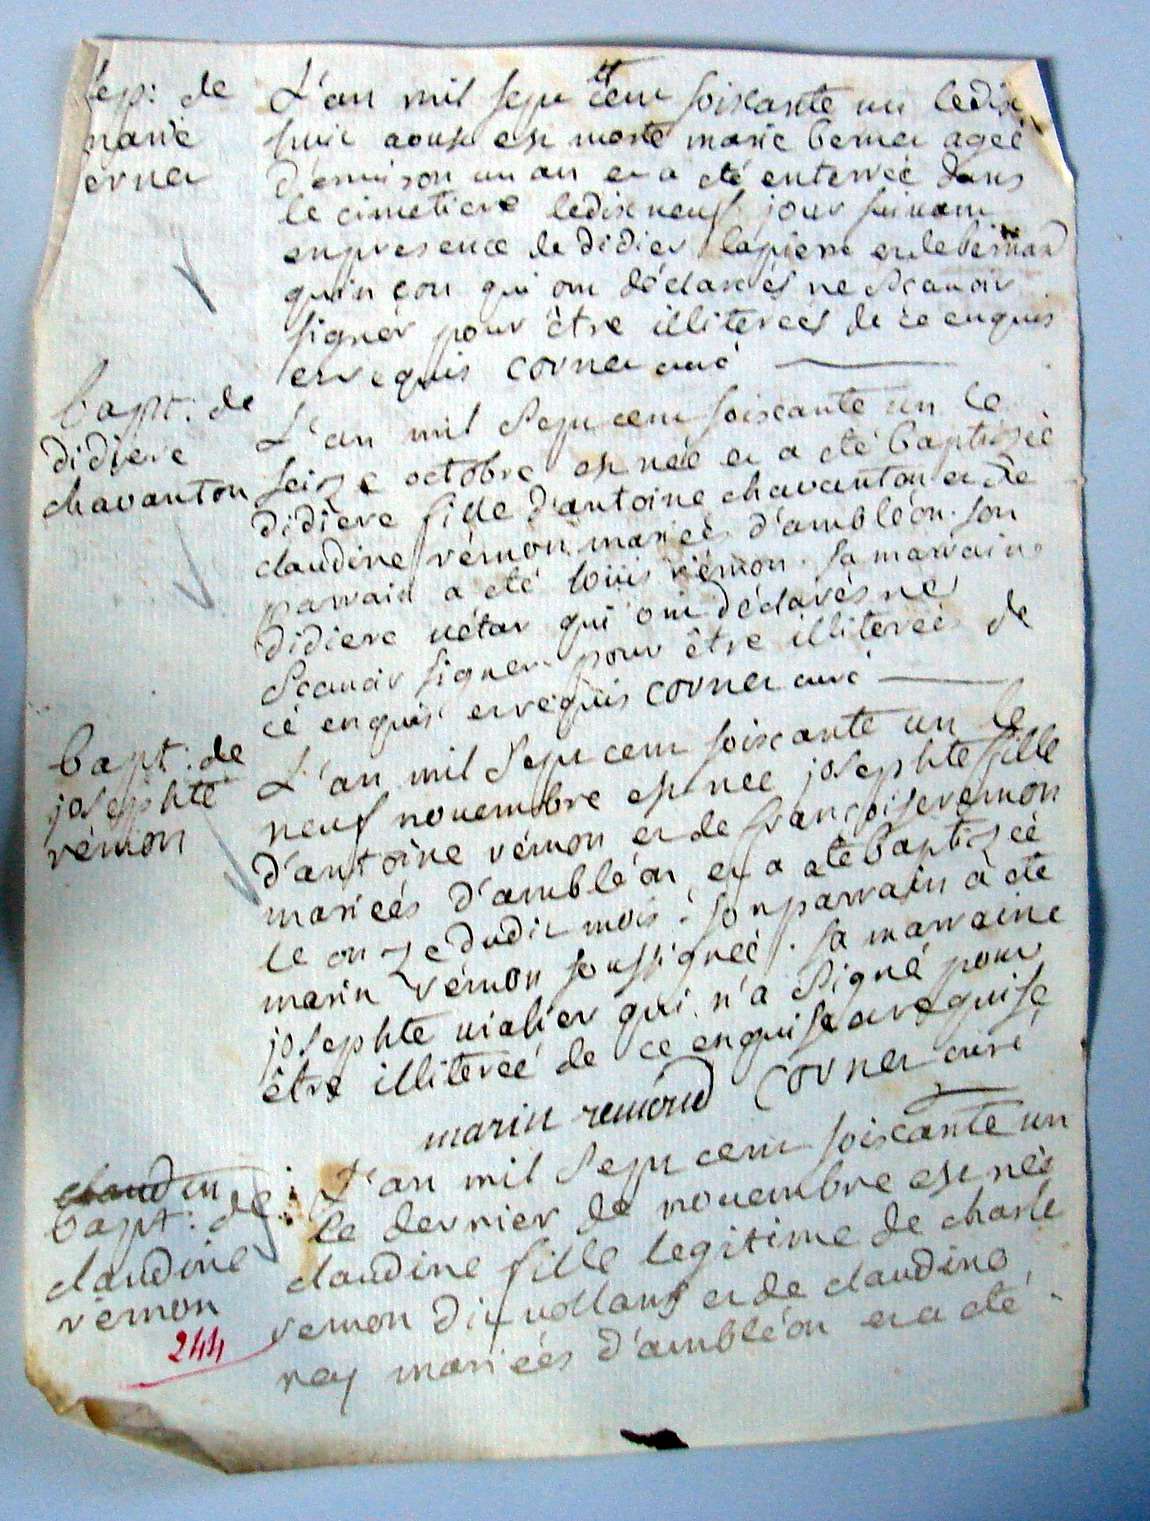 sep: de
marie
erner
L'an mil sept cent soixante un ledix
huit aoust est morte marie berner ageé
d'environ un an et a eté enterreé dans
le cimetiere ledix neuf jour suivant
enpresence de didier lapierre et de bernard
quinçon qui ont déclarés ne scavoir
signer pour être illitereés de ce enquis
et requis cornet curé
bapt: de
didiere
chavanton
L'an mil sept cent soixante un le
seize octobre est neé et a eté baptiseé
didiere fille d'antoine chavanton et de
claudine rémon marieés d'ambléon. son
parrain a eté loüis rémon. sa marraine
didiere uétar qui ont déclarés ne
scavoir signer pour être illitereés de
cé enquis et requis cornet curé
bapt: de
josephte
rémon
L'an mil sept cent soixante un le
neuf novembre est neé josephte fille
d'antoine rémon et de françoise remon
marieés d'ambléon, et a ete baptiseé
le onze dudit mois. son parrain a ete
marin rémon soussigneé. sa marraine
josephte vialier qui n'a signé pour
être illitereé de ce enquise et requise
marin remond cornet curé
claudin
bapt: de
claudine
rémon
244
L'an mil sept cent soixante un
le dernier de novembre est neé
claudine fille legitime de charle
remon dit vollant et de claudine
rey marieés d'ambléon et a eté